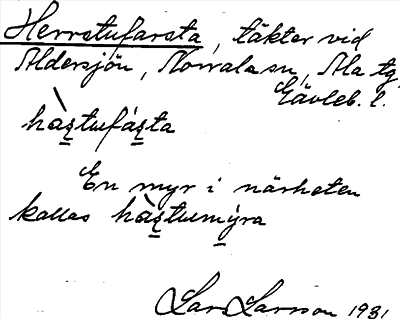 Herrstufarsta, täkter vid
Aldersjön, Norrala sn, Ala tg,
Gävleb. l.
hàs̱tufás̱ta
En myr i närheten
kallas hàs̱tumýra
Lars Larsson 1931